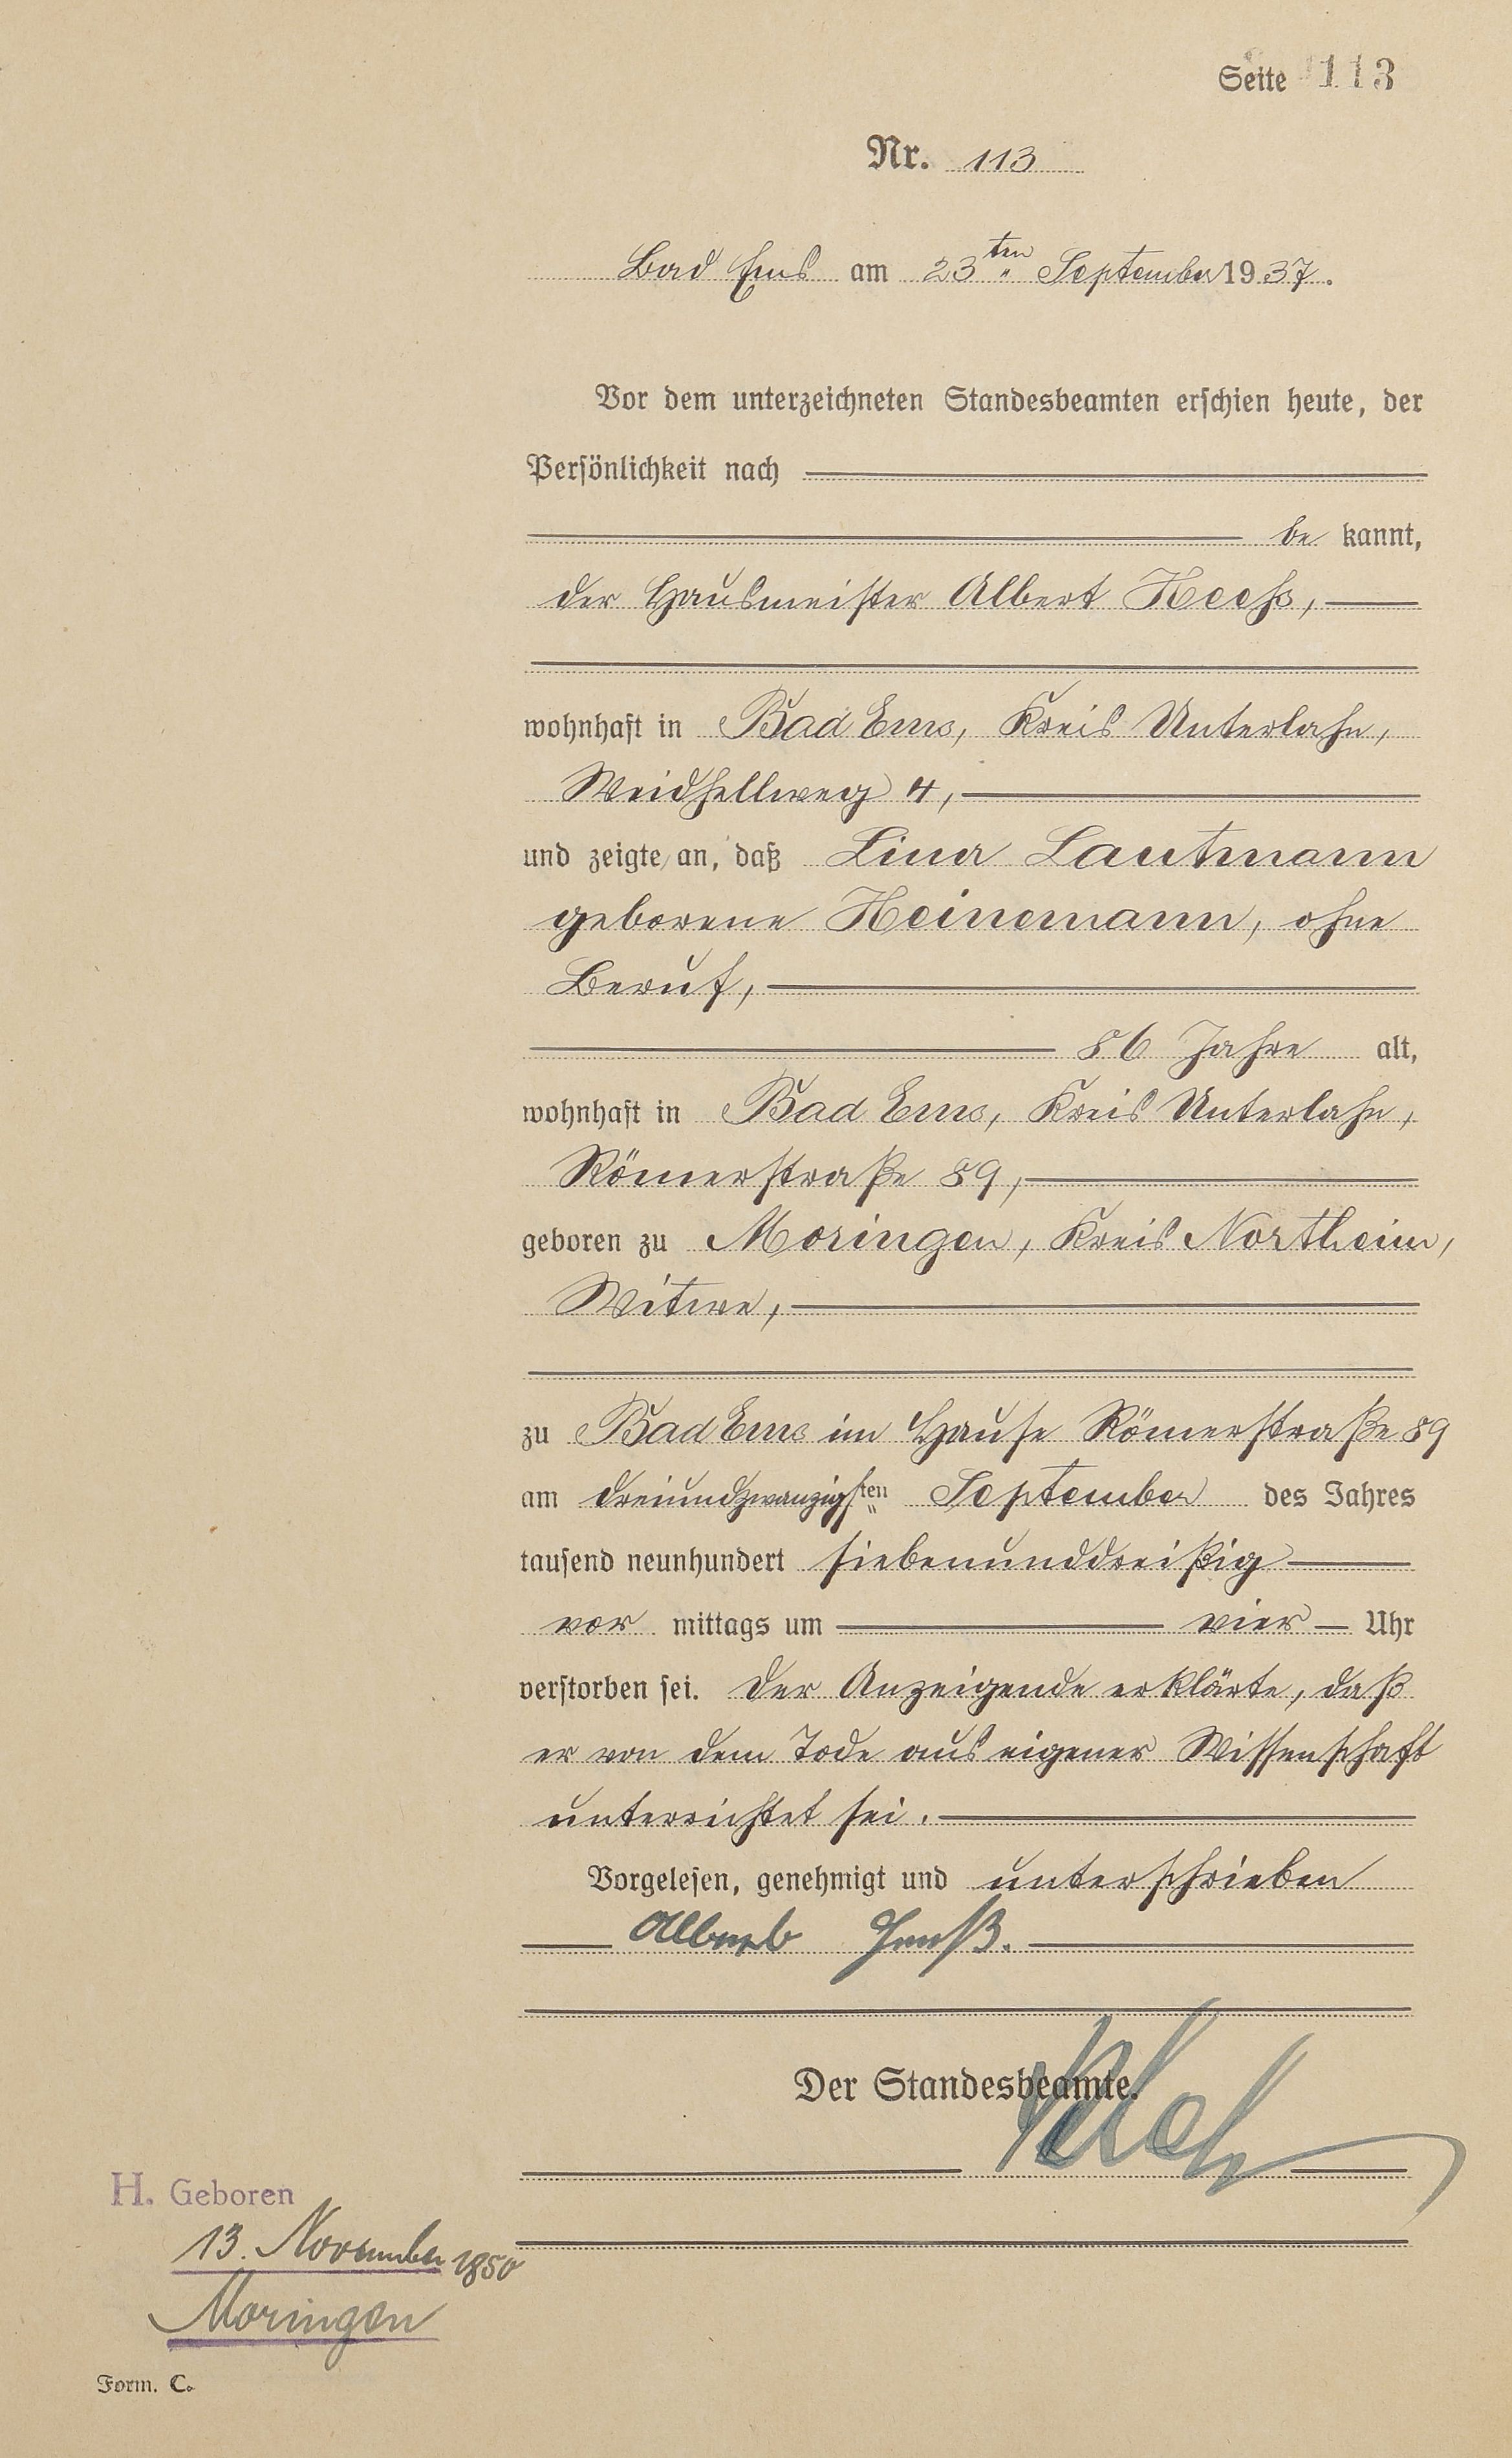 Seite 113
Nr. 113
Bad Ems am 23ten September 1937.
Vor dem unterzeichneten Standesbeamten erschien heute, der
Persönlichkeit nach
be kannt,
der Hausmeister Albert Heeß,
wohnhaft in Bad Ems, Kreis Unterlahn,
Weidhellweg 4,
und zeigte an, daß Lina Lautmann
geborene Heinemann, ohne
Beruf,
86 Jahre alt,
wohnhaft in Bad Ems, Kreis Unterlahn,
Römerstraße 89,
geboren zu Moringen, Kreis Northeim,
Witwe,
zu Bad Ems im Hause Römerstraße 89
am dreiundzwanzigsten September des Jahres
tausend neunhundert siebenunddreißig
vor mittags um vier Uhr
verstorben sei. Der Anzeigende erklärte, daß
er von dem Tode aus eigener Wissenschaft
unterrichtet sei.
Vorgelesen, genehmigt und unterschrieben
Albert Heeß.
Der Standesbeamte.
H. Geboren
13. November 1850
Moringen
Form. C.